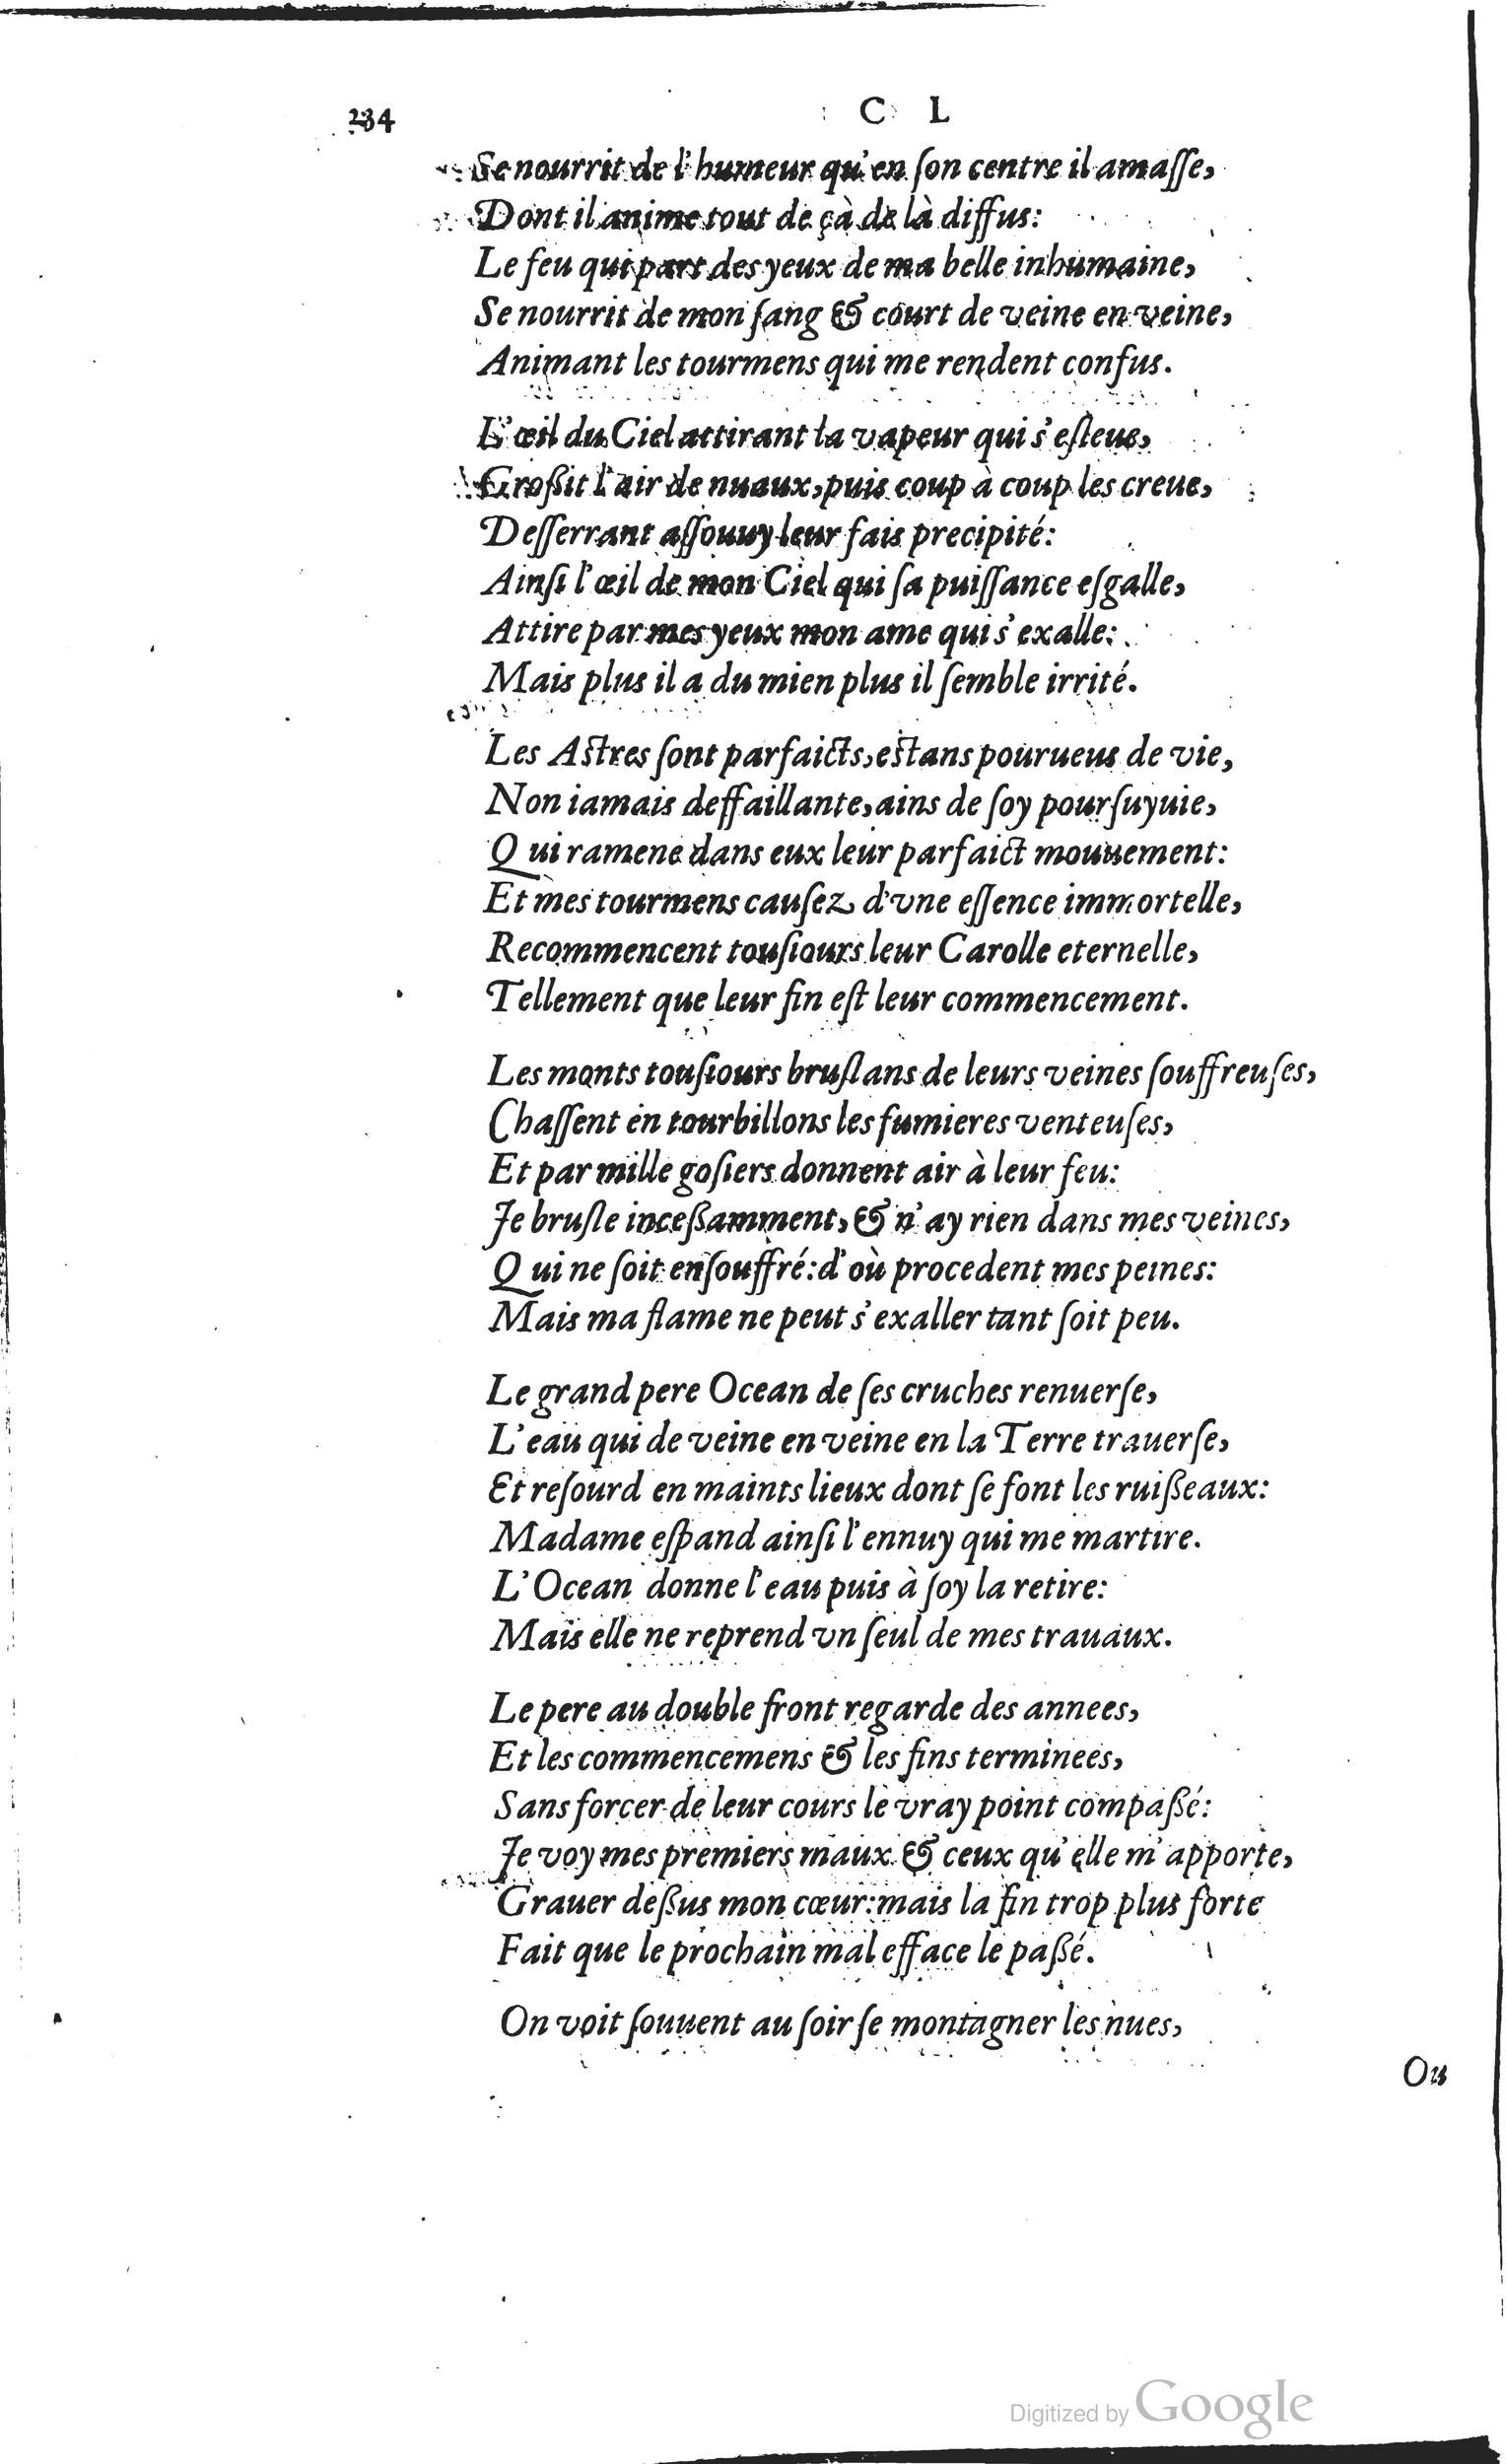 234
C L
Se nourrit de l'humeur qu'en ſon centre il amaſſe,
Dont il anime tout de çà de là diffus:
Le feu qui part des yeux de ma belle inhumaine,
Se nourrit de mon ſang & court de veine en veine,
Animant les tourmens qui me rendent confus.
L'œil du Ciel attirant la vapeur qui s'eſleue,
Großit l'air de nuaux, puis coup à coup les creue,
Deſſerrant aſſouuy leur fais precipité:
Ainſi l'œil de mon Ciel qui ſa puiſſance eſgalle,
Attire par mes yeux mon ame qui s'exalle:
Mais plus il a du mien plus il ſemble irrité.
Les Aſtres ſont parfaicts, eſtans pourueus de vie,
Non iamais deffaillante, ains de ſoy pourſuyuie,
Qui ramene dans eux leur parfaict mouuement:
Et mes tourmens cauſez d'vne eſſence immortelle,
Recommencent touſiours leur Carolle eternelle,
Tellement que leur fin eſt leur commencement.
Les monts touſiours bruſlans de leurs veines ſouffreuſes,
Chaſſent en tourbillons les fumieres venteuſes,
Et par mille goſiers donnent air à leur feu:
Je bruſle inceßamment, & n'ay rien dans mes veines,
Qui ne ſoit enſouffré: d'où procedent mes peines:
Mais ma flame ne peut s'exaller tant ſoit peu.
Le grand pere Ocean de ſes cruches renuerſe,
L'eau qui de veine en veine en la Terre trauerſe,
Et reſourd en maints lieux dont ſe font les ruißeaux:
Madame eſpand ainſi l'ennuy qui me martire.
L'Ocean donne l'eau puis à ſoy la retire:
Mais elle ne reprend vn ſeul de mes trauaux.
Le pere au double front regarde des annees,
Et les commencemens & les fins terminees,
Sans forcer de leur cours le vray point compaßé:
Je voy mes premiers maux & ceux qu'elle m'apporte,
Grauer deßus mon cœur: mais la fin trop plus forte
Fait que le prochain mal efface le paßé.
On voit ſouuent au ſoir ſe montagner les nues,
Ou
Digitized by Google